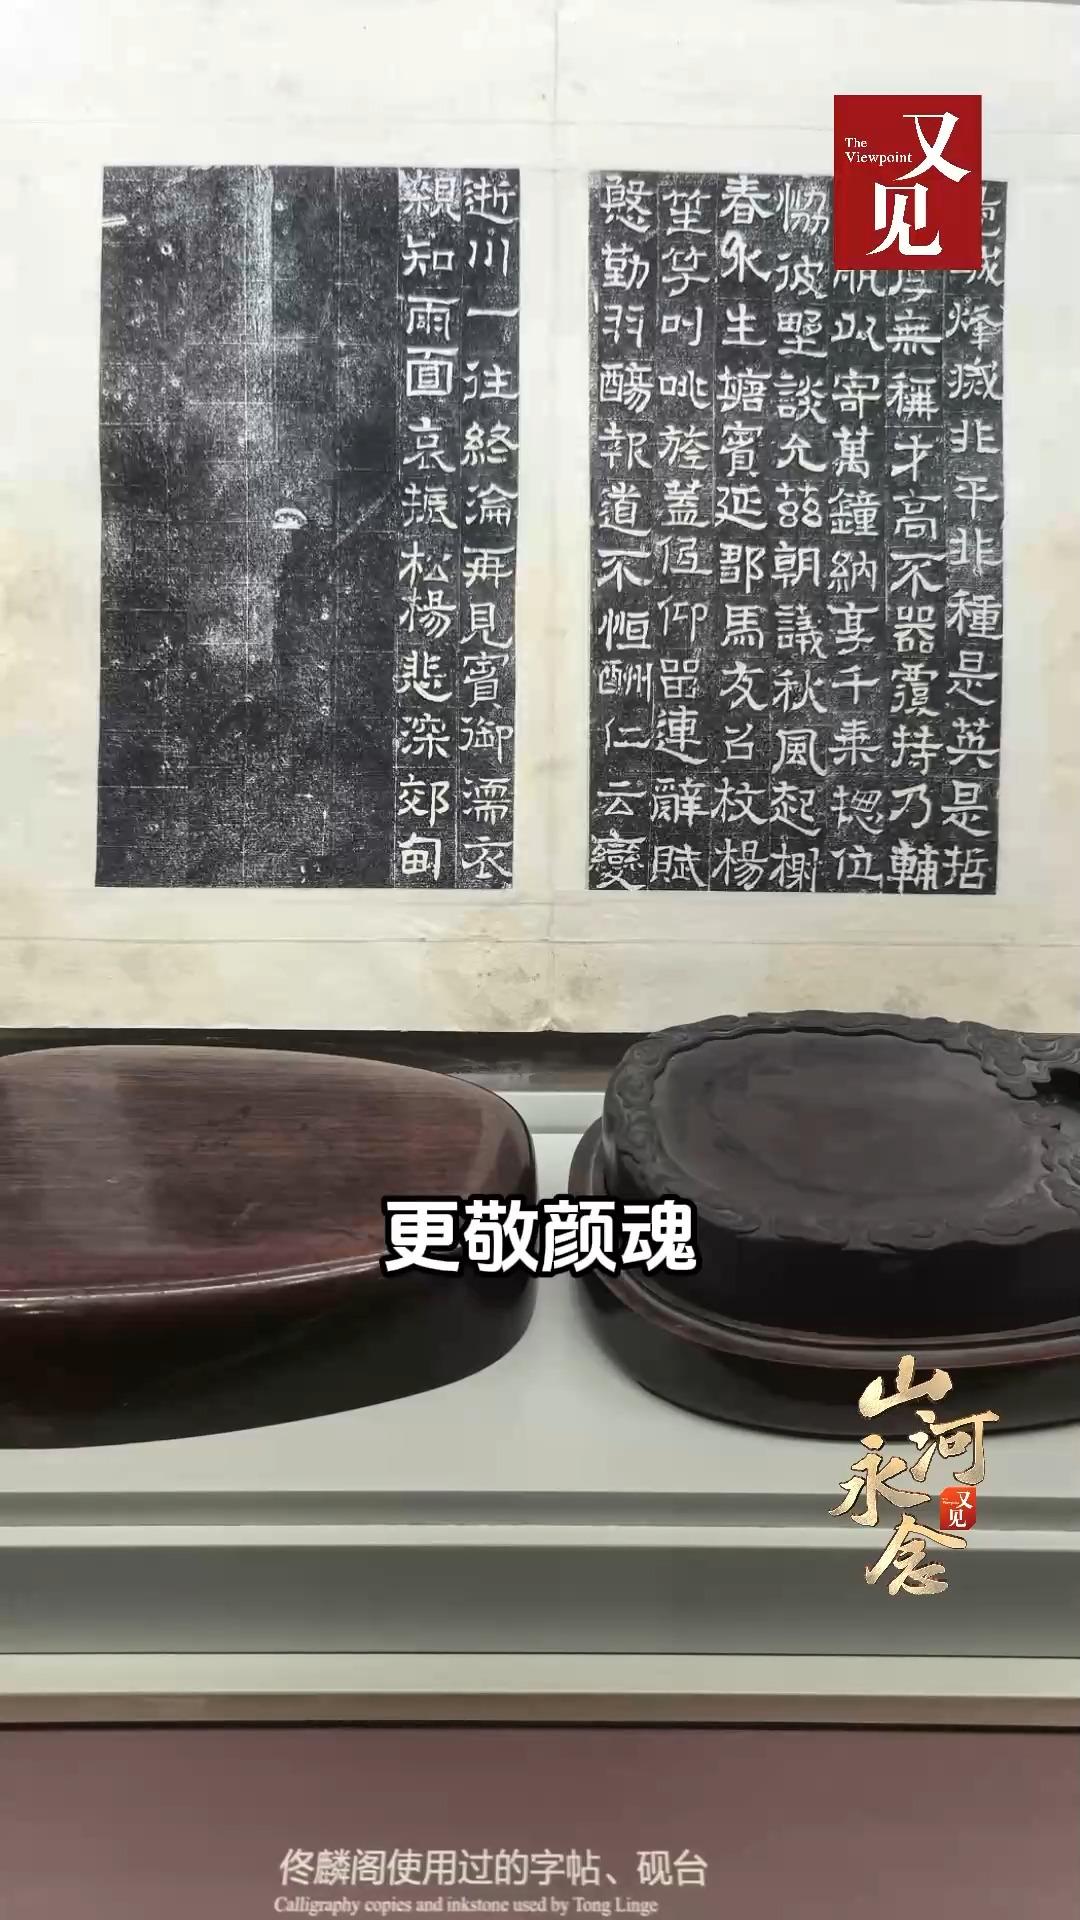 又见
The Viewpoint
非平非種是英是哲
厚無稱才高不器覆持乃輔
以寄萬鐘納享千乘揔位
恊彼野談允茲朝議秋風起樹
春氷生塘賓延鄒馬友召枚楊
笙竽叫咷旌蓋低仰邑連辭賦
慇勤羽觴報道不恒酬仁云變
逝川一往終淪再見賓御濡衣
親知雨面哀振松楊悲深郊甸
更敬颜魂
山河永念
又见
佟麟阁使用过的字帖、砚台
Calligraphy copies and inkstone used by Tong Linge